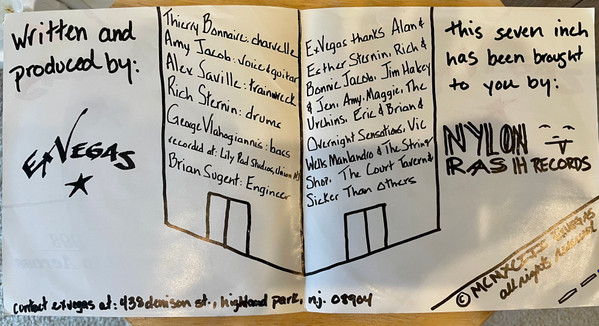 Written and
produced by:
EXVEGAS
Thierry Bonnaire: charvelle
Amy Jacob: voice & guitar
Alex Saville: trainwreck
Rich Sternin: drums
George Vlahogiannis: bass
recorded at: Lily Pad Studios, Union NJ
Brian Sugent: Engineer
ExVegas thanks Alan &
Esther Sternin, Rich &
Bonnie Jacob, Jim Hakey
& Jen, Amy, Maggie, The
Urchins, Eric & Brian &
Overnight Sensations, Vic
Wells Manlandro & The String
Shop, The Court Tavern &
Sicker Than Others
this seven inch
has been brought
to you by:
NYLON
RASIH RECORDS
contact exvegas at: 438 denison st., highland park, nj. 08904
all right reserved